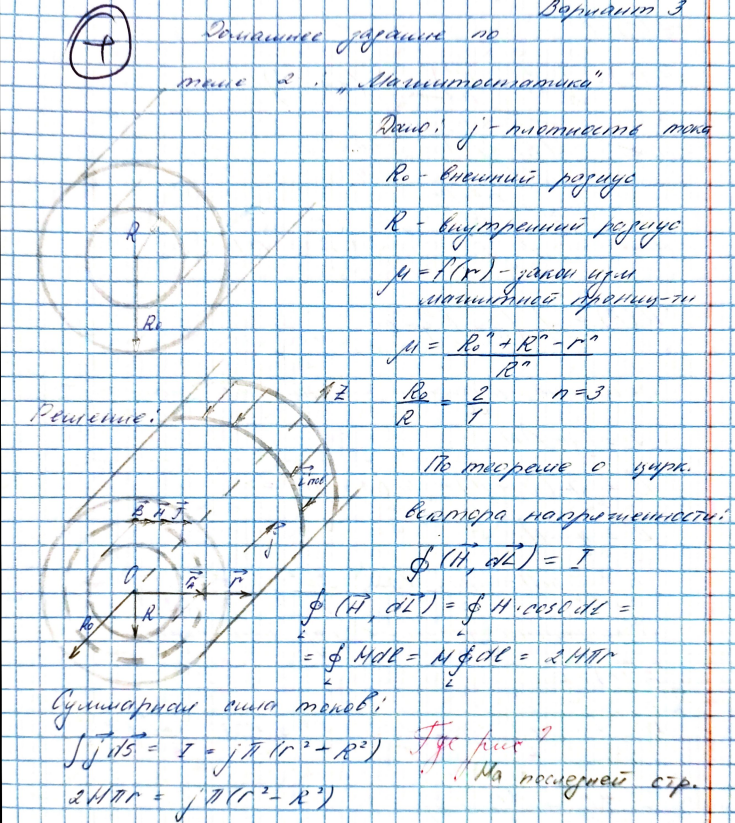 Вариант 3
Домашнее задание по
теме 2: „Магнитостатика"
Дано: j - плотность тока
R₀ - внешний радиус
R - внутренний радиус
μ = f(r) - закон изм
магнитной прониц-ти
μ = (R₀ⁿ + Rⁿ - rⁿ) / Rⁿ
R₀/R = 2/1 n=3
R
R₀
Решение:
Z
i⃗ пов
B⃗ H⃗ J⃗
j⃗
O
r⃗
R₀
R
По теореме о цирк.
вектора напряженности:
∮(H⃗, dL⃗) = I
∮(H⃗, dL⃗) = ∮ H·cos0 dl =
L L
= ∮ Hdl = H∮dl = 2Hπr
L L
Суммарная сила токов:
∫j⃗ds⃗ = I = jπ(r² - R²)
Где рис?
На последней стр.
2Hπr = jπ(r² - R²)